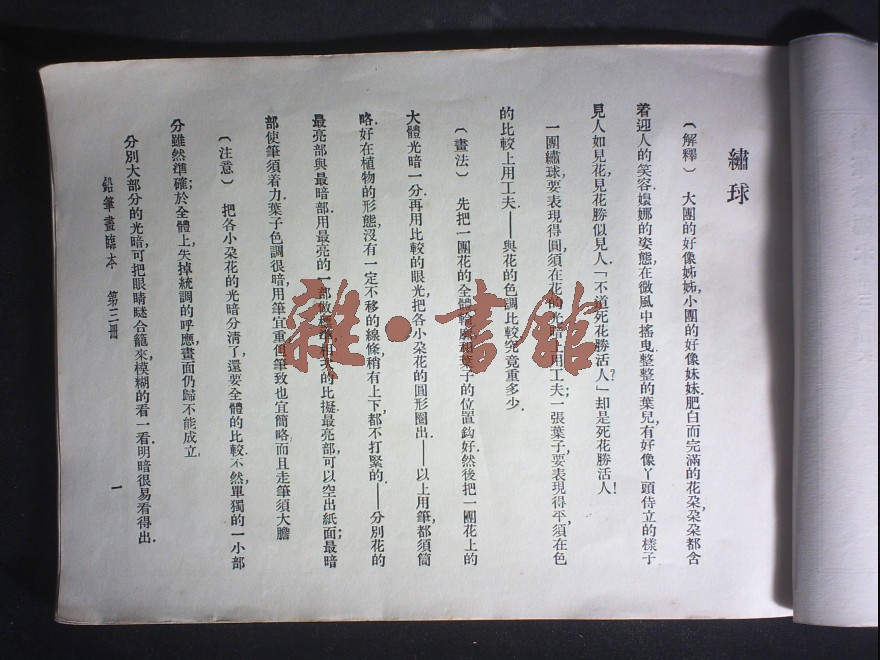 繡球
（解釋） 大團的好像姊姊,小團的好像妹妹.肥白而完滿的花朶,朶朶都含
着迎人的笑容.嬝娜的姿態在微風中搖曳.整整的葉兒,有好像丫頭侍立的樣子
見人如見花,見花勝似見人.「不道死花勝活人」?却是死花勝活人!
一團繡球,要表現得圓,須在花的光暗上用工夫;一張葉子,要表現得平,須在色
的比較上用工夫.——與花的色調比較究竟重多少.
（畫法） 先把一團花的全體和葉子的位置鈎好.然後把一團花上的
大體光暗一分.再用比較的眼光,把各小朶花的圓形圈出.——以上用筆都須簡
略.好在植物的形態,沒有一定不移的線條,稍有上下,都不打緊的.——分別花的
最亮部與最暗部.用最亮的一部的比擬.最亮部,可以空出紙面;最暗
部使筆須着力.葉子色調很暗,用筆宜重.但筆致也宜簡略,而且走筆須大膽
（注意） 把各小朶花的光暗分清了,還要全體的比較.不然,單獨的一小部
分雖然準確;於全體上失掉統調的呼應,畫面仍歸不能成立.
分別大部分的光暗,可把眼睛瞇合籠來,模糊的看一看,明暗很易看得出.
鉛筆畫臨本 第三冊 一
雜·書館